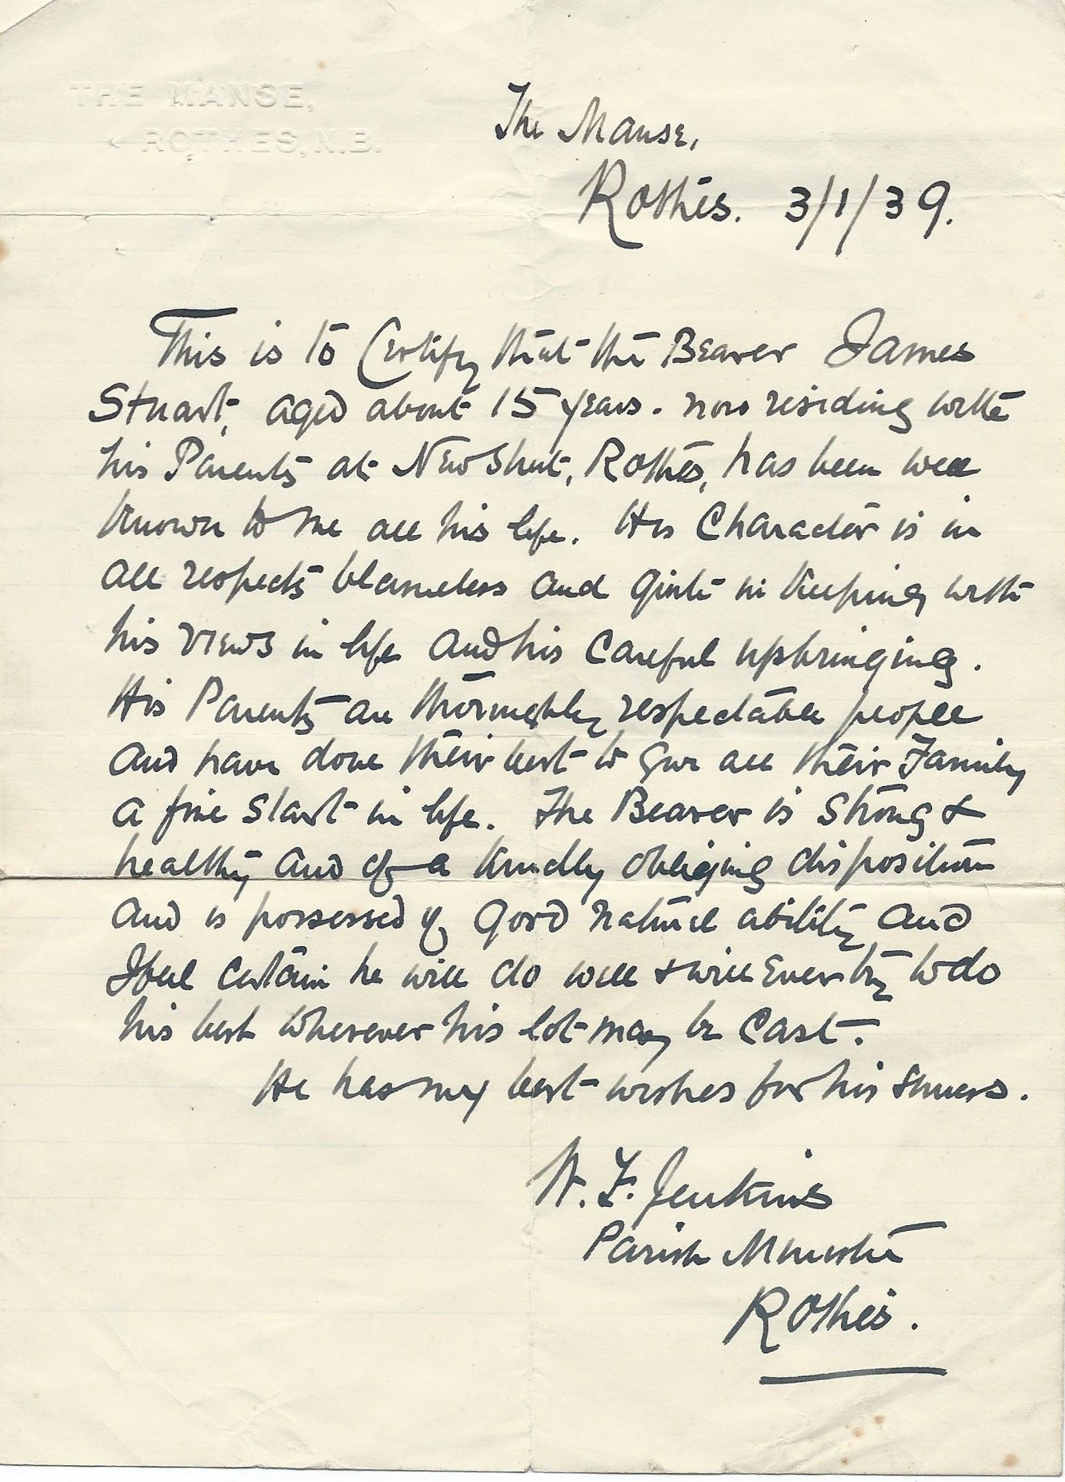 THE MANSE,
ROTHES, N.B.
The Manse,
Rothes. 3/1/39.
This is to Certify that the Bearer James
Stuart, aged about 15 years. now residing with
his Parents at New Street, Rothes, has been well
known to me all his life. His Character is in
all respects blameless and quite in keeping with
his views in life and his careful upbringing.
His Parents are thoroughly respectable people
and have done their best to give all their Family
a fine start in life. The Bearer is strong &
healthy and of a kindly obliging disposition
and is possessed of good natural ability and
I feel certain he will do well & will ever try to do
his best wherever his lot may be cast.
He has my best wishes for his success.
W. F. Jenkins
Parish Minister
Rothes.